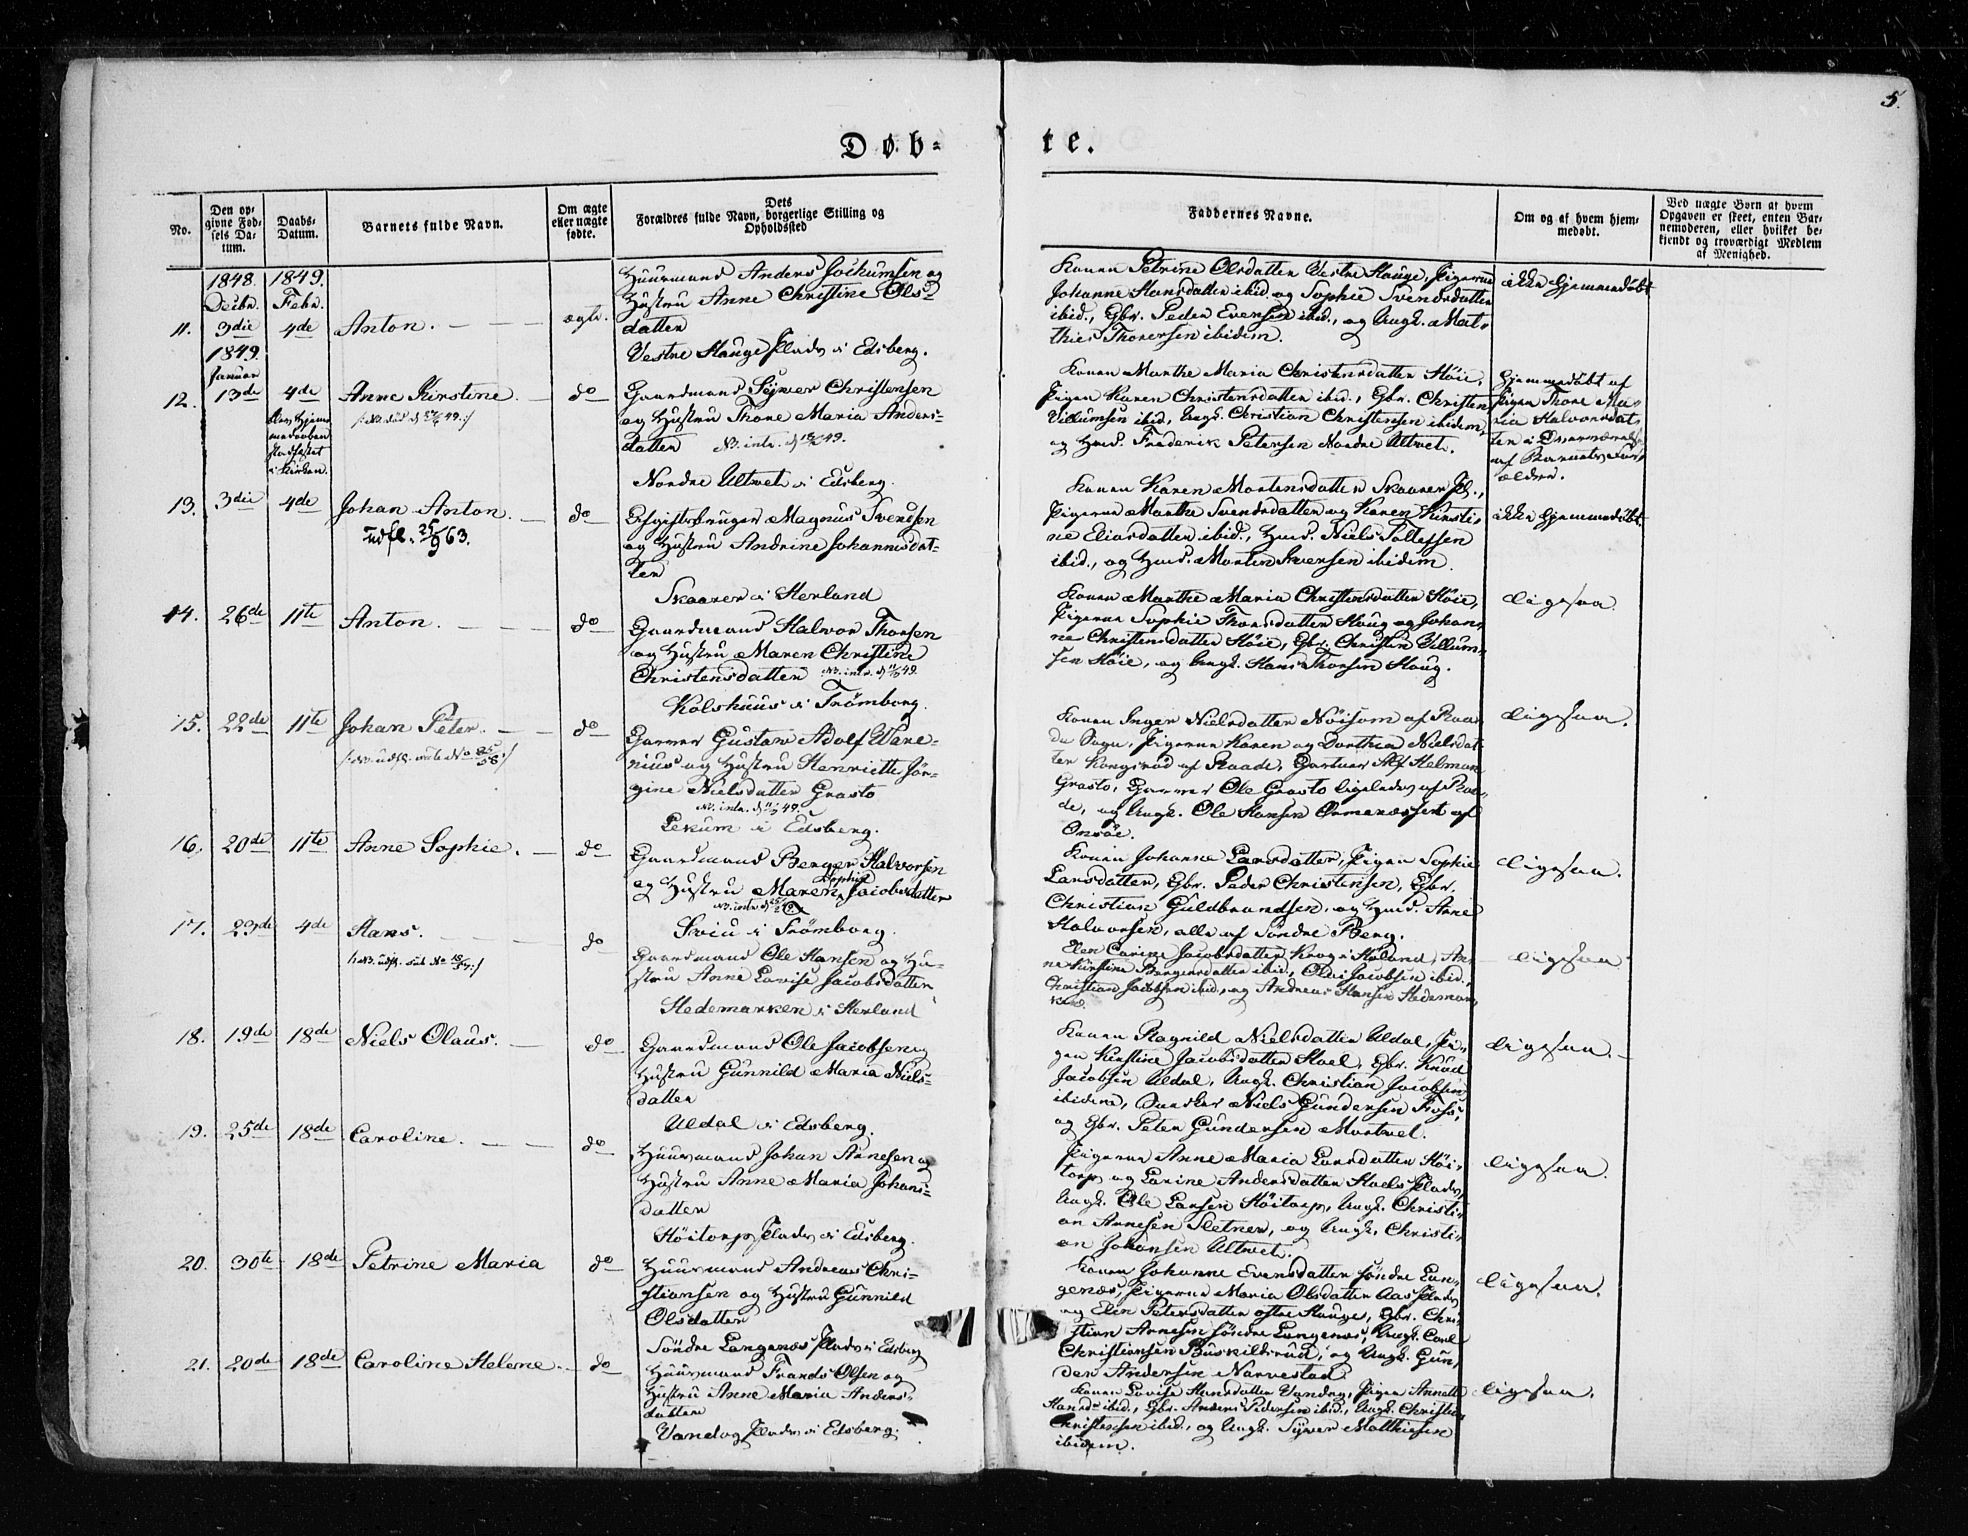 5.
Døb-
te.
No.
Den op-
givne Fød-
sels Da-
tum.
Daabs-
Datum.
Barnets fulde Navn.
Om ægte
eller uægte
fødte.
Dets
Forældres fulde Navn, borgerlige Stilling og
Opholdssted
Faddernes Navne.
Om og af hvem hjem-
medøbt.
Ved uægte Børn at hvem
Opgaven er skeet, enten Bar-
nemoderen, eller hvilket be-
kjendt og troværdigt Medlem
af Menighed.
1848.
Decbr.
1849.
Febr.
11.
3die
4de
Anton.
ægte.
Huusmand Anders Jochumsen og
Hustru Anne Christine Ols-
datter
Vestre Hauge Plads i Edsberg.
Konen Petrine Olsdatter Vestre Hauge, Pigerne
Johanne Hansdatter ibid. og Sophie Svendsdatter
ibid., Gbr. Peder Evensen ibid., og Ungk. Mat-
thies Thoresen ibidem.
ikke hjemmedøbt
1849.
Januar
12.
13de
4de
blev hjem-
medaaben
stadfæstet
i Kirken.
Anne Kirstine.
do
Gaardmand Syver Christensen
og Hustru Thore Maria Anders-
datter
Nordre Ultvet i Edsberg.
Konen Marthe Maria Christensdatter Høie,
Pigen Karen Christensdatter ibid., Gbr. Christen
Villumsen ibid., Ungk. Christian Christensen ibidem,
og Hmd. Frederik Petersen Nordre Ultvet.
Hjemmedøbt af
Pigen Thore Ma-
ria Halvorsdat-
ter i Overværelse
af Barnets For-
ældre.
13.
3die
4de
Johan Anton.
udfl. 25/9 63.
do
Afgiftsbruger Magnus Svendsen
og Hustru Andrine Johannesdat-
ter
Skaarer i Herland
Konen Karen Mortensdatter Skaarer Pl.,
Pigerne Marthe Svendsdatter og Karen Kirsti-
ne Eliasdatter ibid., Hmd. Niels Tollefsen
ibid., og Hmd. Morten Iversen ibidem.
ikke hjemmedøbt
14.
26de
11te
Anton.
do
Gaardmand Halvor Thorsen
og Hustru Maren Christine
Christensdatter
Kolshuus i Trømborg.
Konen Marthe Maria Christensdatter Høie,
Pigerne Sophie Thorsdatter Haug og Johan-
ne Christensdatter Høie, Gbr. Christen Villum-
sen Høie, og Ungk. Hans Thorsen Haug.
ligesaa.
15.
22de
11te
Johan Peter.
do
Garver Gustav Adolf Ware-
nius og Hustru Henriette Jør-
gine Nielsdatter Grasto
Lekum i Edsberg.
Konen Inger Nielsdatter Nøisom af Raa-
de Sogn, Pigerne Karen og Dorthea Nielsdat-
ter Kongsrød af Raade, Gartner Alf Helman
Grasto, Garver Ole Grasto ligeledes af Raa-
de, og Ungk. Ole Hansen Ormenæsset af
Onsøe.
ligesaa.
16.
20de
11te
Anne Sophie.
do
Gaardmand Berger Halvorsen
og Hustru Maren Sophie Jacobsdatter
Sviu i Trømborg.
Konen Johanne Larsdatter, Pigen Sophie
Larsdatter, Gbr. Peder Christensen, Gbr.
Christian Guldbrandsen, og Hmd. Arne
Halvorsen, alle af Søndre Berg.
ligesaa.
17.
29de
4de
Hans.
do
Gaardmand Ole Hansen og Hu-
stru Anne Lovise Jacobsdatter
Hedemarken i Herland
Elen Carine Jacobsdatter Krog i Heland, An-
ne Kirstine Bergersdatter ibid., Olai Jacobsen ibid.,
Christian Jacobsen ibid., og Andreas Hansen Hedemar-
ken.
ligesaa
18.
19de
18de
Niels Olaus.
do
Gaardmand Ole Jacobsen og
Hustru Gunnild Maria Niels-
datter
Uldal i Edsberg.
Konen Ragnild Nielsdatter Uldal, Pi-
gen Kirstine Jacobsdatter Hoel, Gbr. Knud
Jacobsen Uldal, Ungk. Christian Jacobsen
ibidem, Niels Gundersen Foss,
og Gbr. Peter Gundersen Mortvet.
ligesaa.
19.
25de
18de
Caroline.
do
Huusmand Johan Arnesen og
Hustru Anne Maria Johans-
datter
Høitorp Plads i Edsberg.
Pigerne Anne Maria Larsdatter Høi-
torp og Larine Andersdatter Hoels Plads,
Ungk. Ole Larsen Høitorp, Ungk. Christi-
an Arnesen Sletner, og Ungk. Christi-
an Johansen Ultvet.
ligesaa.
20.
30te
18de
Petrine Maria
do
Huusmand Andreas Chri-
stiansen og Hustru Gunnild
Olsdatter
Søndre Langenæs Plads i Edsberg
Konen Johanne Evensdatter søndre Lan-
genæs, Pigerne Maria Olsdatter Aas Plads
og Elen Petersdatter østre Hauge, Gbr. Chri-
stian Arnesen søndre Langenæs, Ungk. Carl
Christiansen Buskildsrud, og Ungk. Gun-
der Andersen Narvestad.
ligesaa.
21.
20de
18de
Caroline Helene.
do
Huusmand Frands Olsen og
Hustru Anne Maria Anders-
datter
Vandog Plads i Edsberg.
Konen Lovise Hansdatter Vandog, Pigen Annette
Hansd. ibid., Gbr. Anders Pedersen ibid., Ungk. Christian
Christensen ibid., og Ungk. Syver Matthiesen
ibidem.
ligesaa.